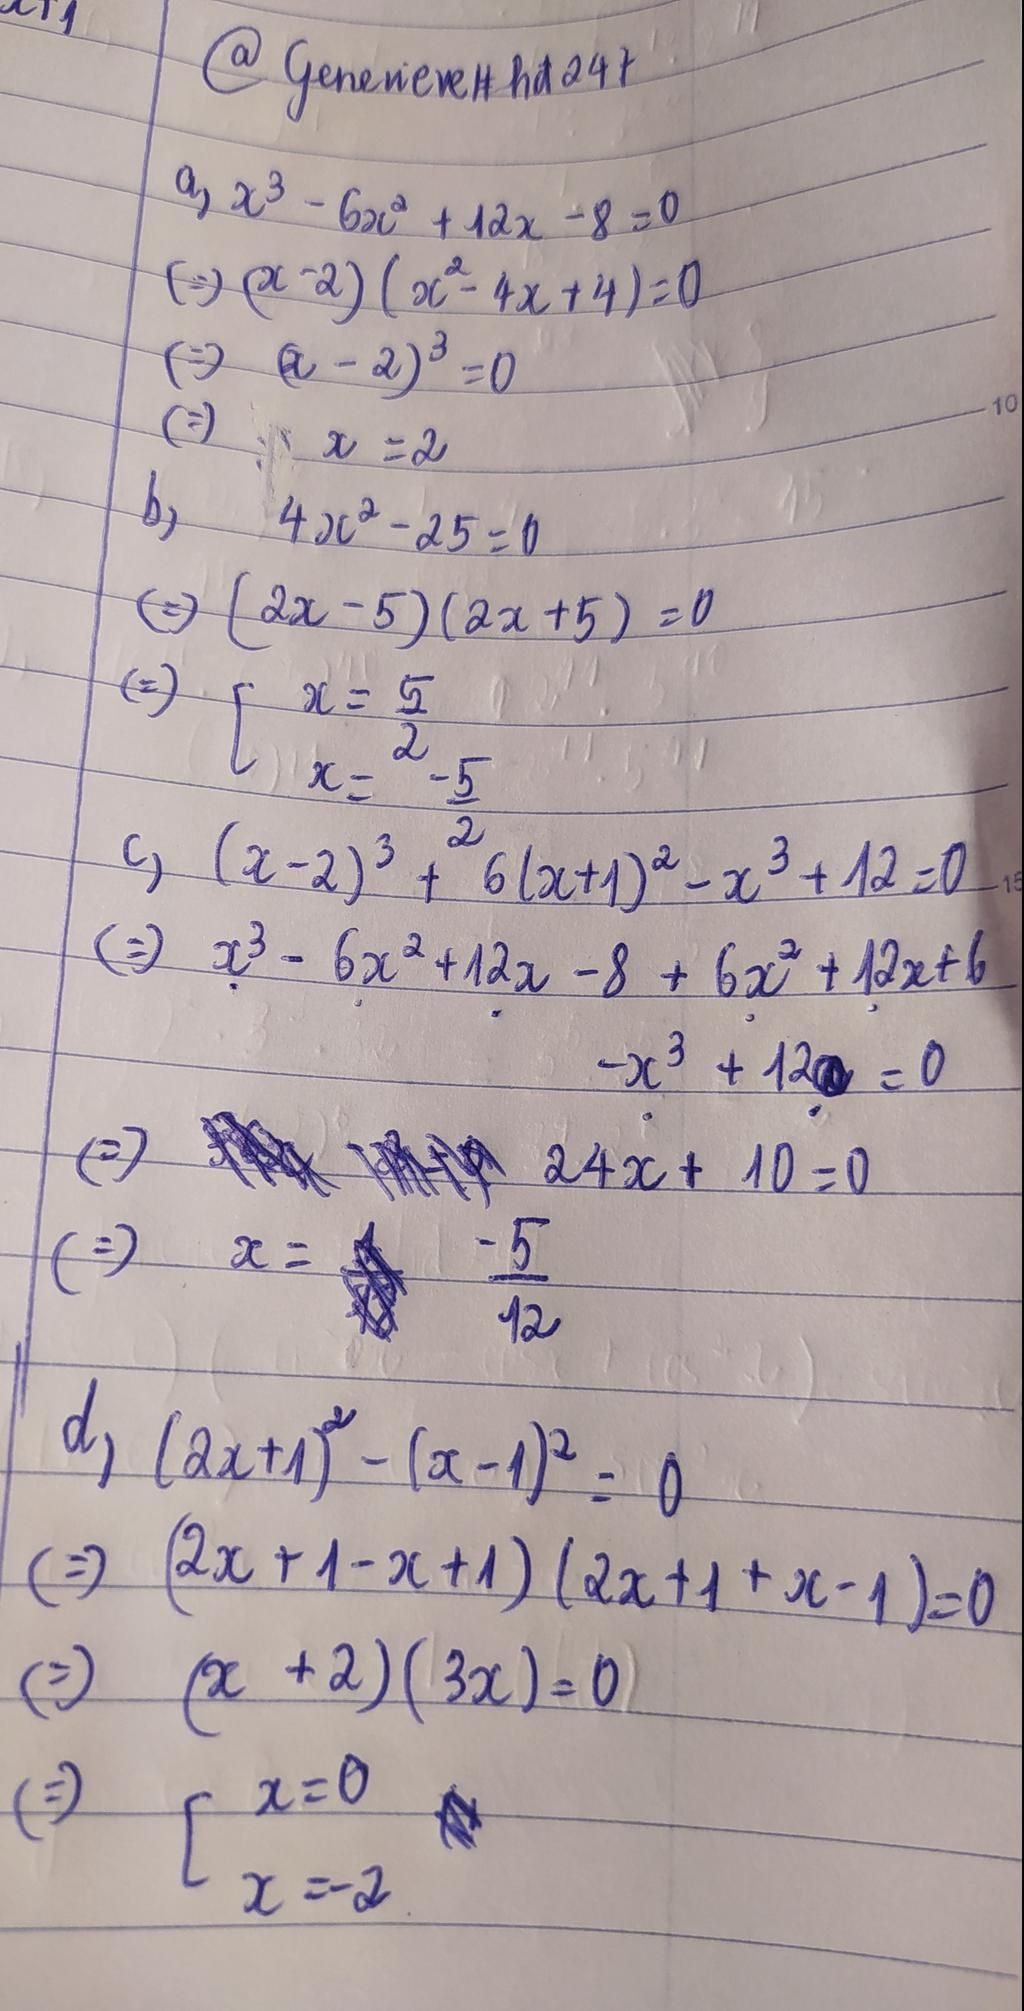 x+1
@GenevieveH hd247
a, x³ - 6x² + 12x - 8 = 0
(=) (x-2)(x² - 4x + 4) = 0
(=) (x - 2)³ = 0
(=) x = 2
b, 4x² - 25 = 0
(=) (2x - 5)(2x + 5) = 0
(=) [ x = 5/2
x = -5/2
c, (x-2)³ + 6(x+1)² - x³ + 12 = 0
(=) x³ - 6x² + 12x - 8 + 6x² + 12x + 6
-x³ + 12 = 0
(=) 24x + 10 = 0
(=) x = -5/12
d, (2x+1)² - (x-1)² = 0
(=) (2x + 1 - x + 1)(2x + 1 + x - 1) = 0
(=) (x + 2)(3x) = 0
(=) [ x = 0
x = -2
10
15